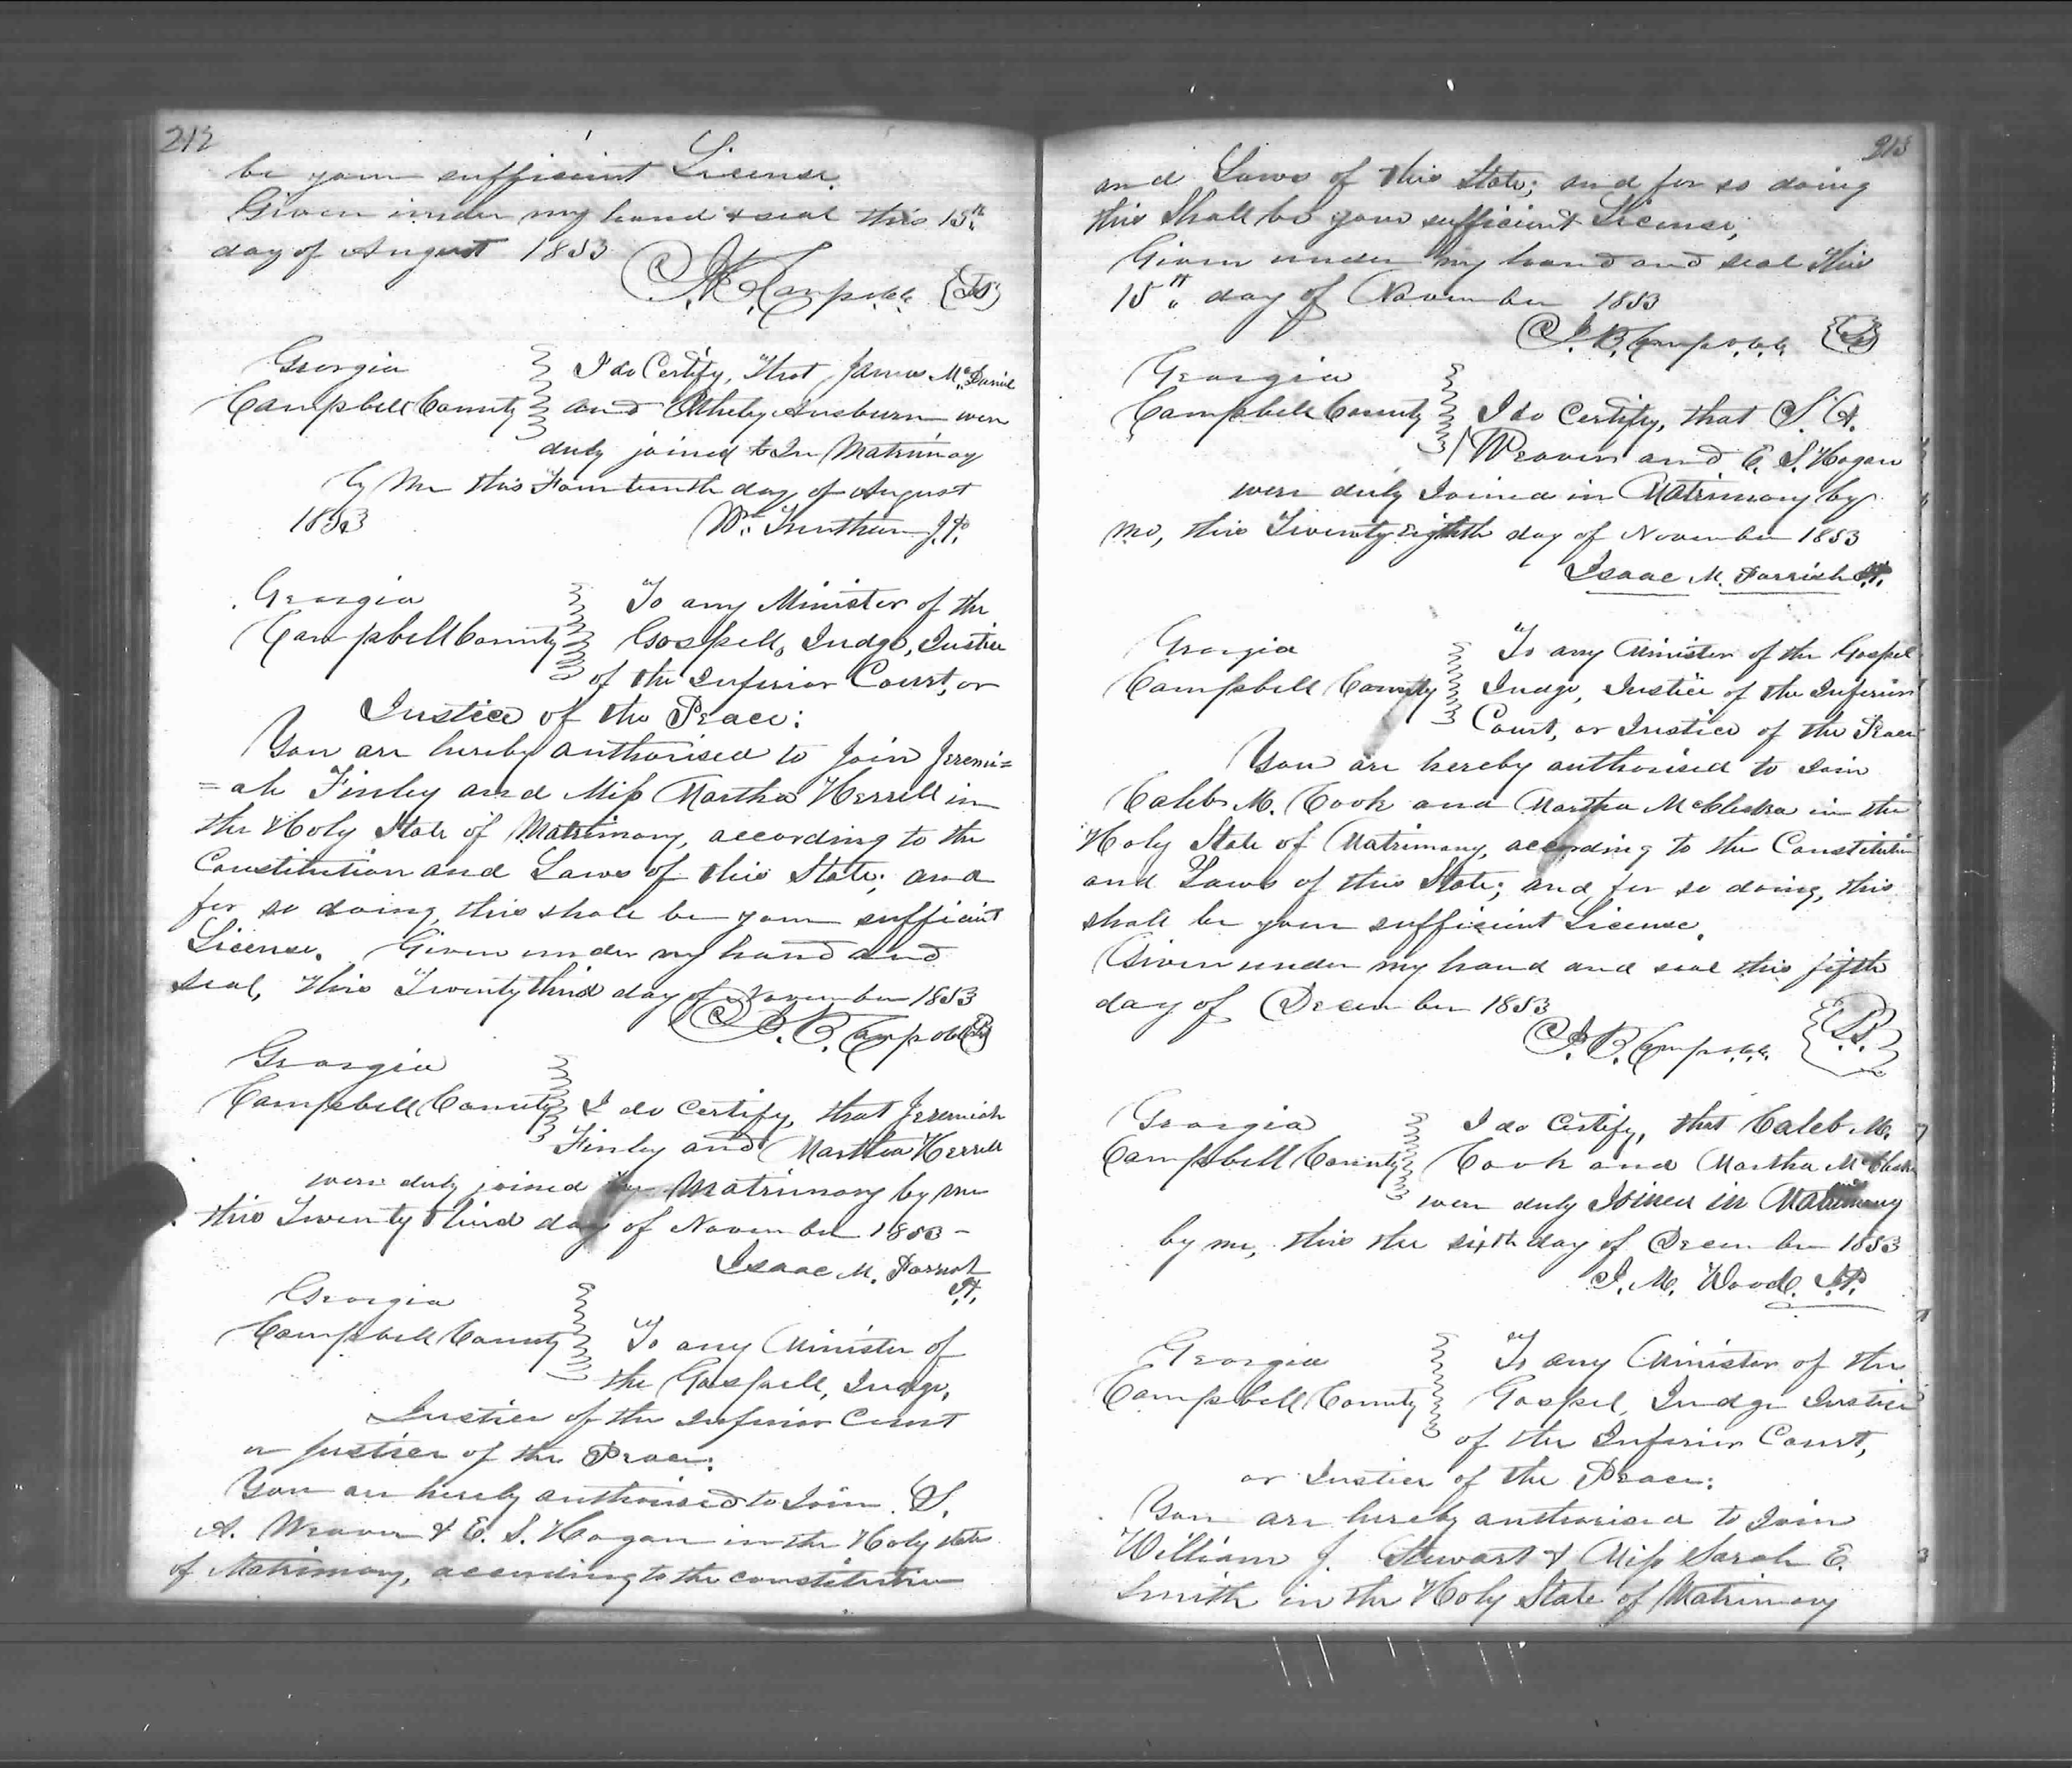 212
be your sufficient License.
Given under my hand & seal this 15th
day of August 1853
Georgia
Campbell County
I do Certify, that James McDaniel
and Ausburn were
duly joined in Matrimony
by Me this Fourteenth day of August
1853
Wm. J.P.
Georgia
Campbell County
To any Minister of the
Gospell, Judge, Justice
of the Inferior Court, or
Justice of the Peace:
You are hereby authorised to join Jeremi=
=ah Finley and Miss Martha Herrell in
the Holy State of Matrimony, according to the
Constitution and Laws of this State; and
for so doing, this shall be your sufficient
License. Given under my hand and
seal, this Twenty third day of November 1853
Georgia
Campbell County
I do Certify, that Jeremiah
Finley and Martha Herrell
were duly joined in Matrimony by me
this Twenty third day of November 1853 -
Isaac M. Parrish
J.P.
Georgia
Campbell County
To any Minister of
the Gospell, Judge,
Justice of the Inferior Court
or Justice of the Peace:
You are hereby authorised to Join S.
A. Weaver & E. S. Hogan in the Holy State
of Matrimony, according to the constitution
213
and Laws of this State; and for so doing
this Shall be your sufficient License;
Given under my hand and seal this
15th day of November 1853
Georgia
Campbell County
I do Certify, that S. A.
Weaver and E. S. Hogan
were duly Joined in Matrimony by
me, this Twenty eighth day of November 1853
Isaac M. Parrish J.P.
Georgia
Campbell County
To any Minister of the Gospel
Judge, Justice of the Inferior
Court, or Justice of the Peace
You are hereby authorised to Join
Caleb M. Cook and Martha in the
Holy State of Matrimony, according to the Constitution
and Laws of this State; and for so doing, this
shall be your sufficient License.
Given under my hand and seal this fifth
day of December 1853
Georgia
Campbell County
I do Certify, that Caleb M.
Cook and Martha
were duly Joined in Matrimony
by me, this the sixth day of December 1853
J. M. Wood J.P.
Georgia
Campbell County
To any Minister of the
Gospel, Judge Justice
of the Inferior Court,
or Justice of the Peace:
You are hereby authorised to Join
William J. Stewart & Miss Sarah E.
Smith in the Holy State of Matrimony